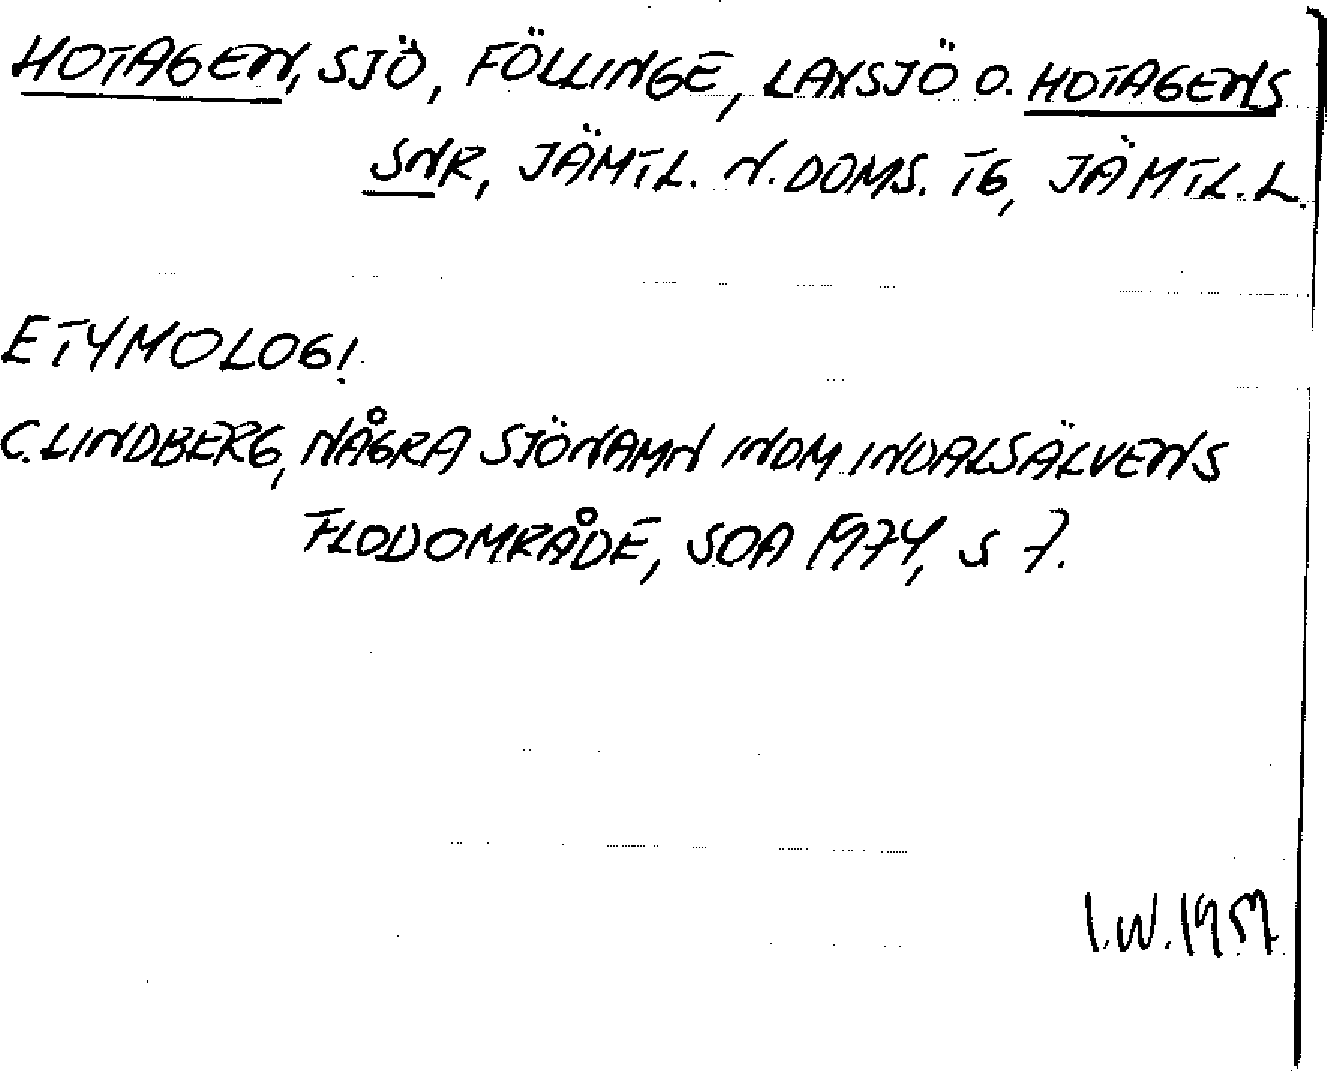 HOTAGEN, SJÖ, FÖLLINGE, LAXSJÖ O. HOTAGENS
SNR, JÄMTL. N. DOMS. TG, JÄMTL. L.
ETYMOLOGI
C. LINDBERG, NÅGRA SJÖNAMN INOM INDALSÄLVENS
FLODOMRÅDE, SOA 1974, S 7.
I.W. 1957